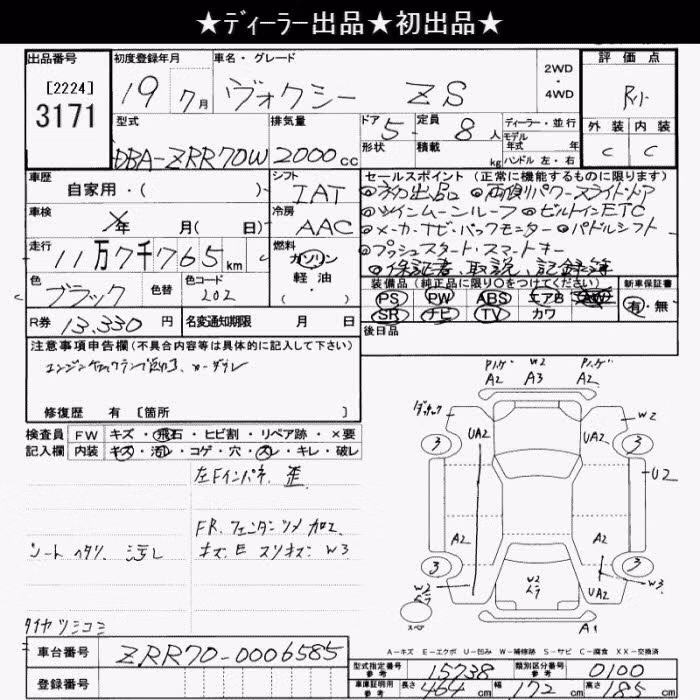 ★ディーラー出品★初出品★
出品番号
[2224]
3171
初度登録年月
19年 7月
車名・グレード
ヴォクシー ZS
2WD
・
4WD
評価点
外装 内装
C C
型式
DBA-ZRR70W
排気量
2000cc
ドア 5
形状
定員 8人
積載 kg
ディーラー・並行
モデル
年式 年
ハンドル 左・右
車歴
自家用・( )
シフト
IAT
車検
年 月( 日)
冷房
AAC
走行
11万7千765km
燃料
ガソリン
軽・油
・( )
色
ブラック
色替
色コード
202
R券 13,330円
名変通知期限 月 日
セールスポイント (正常に機能するものに限ります)
◎初出品 ◎両側パワースライドドア
◎ツインムーンルーフ ◎ビルトインETC
◎メーカーナビ・バックモニター ◎パドルシフト
◎プッシュスタート・スマートキー
◎保証書、取説、記録簿
装備品 (純正品に限り○をつけてください)
新車保証書
PS PW ABS エアB
SR ナビ TV カワ
有・無
後日品
注意事項申告欄 (不具合内容等は具体的に記入して下さい)
修復歴 有 [箇所 ]
検査員 FW キズ・飛石・ヒビ割・リペア跡・×要
記入欄 内装 キズ・汚レ・コゲ・穴・スレ・キレ・破レ
左Fインパネ 歪
FR.フェンダーツメ加工
キズ、E スリキズ W3
シート ヘタリ、汚レ
タイヤツミコミ
P.ハゲ W2 P.ハゲ
A2 A3 A2
W2
3 UA2 UA2 3
U2
A2 A2
3 3
W2 W3
A1
A-キズ E-エクボ U-凹み W-補修跡 S-サビ C-腐食 XX-交換済
車台番号 ZRR70-0006585
登録番号
型式指定番号
参考
15738
類別区分番号
参考
0100
車庫証明用
参考
長さ 464cm 幅 172cm 高さ 185cm